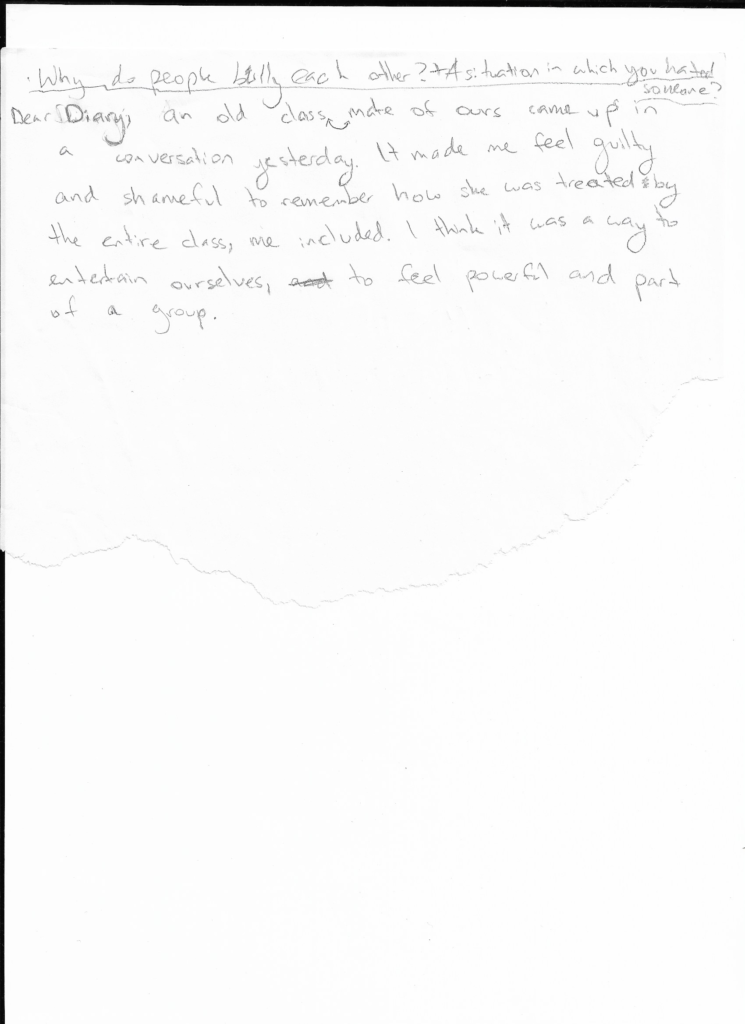 · Why do people bully each other? + A situation in which you hated
someone?
Dear Diary, an old class mate of ours came up in
a conversation yesterday. It made me feel guilty
and shameful to remember how she was treated by
the entire class, me included. I think it was a way to
entertain ourselves, and to feel powerful and part
of a group.